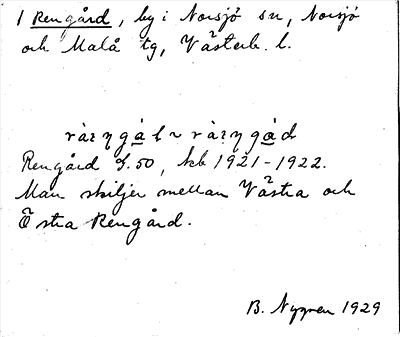 1 Rengård, by i Norsjö sn, Norsjö
och Malå tg, Västerb. l.
Rengård S. 50, kb 1921-1922.
Man skiljer mellan Västra och
Östra Rengård.
B. Nygren 1929